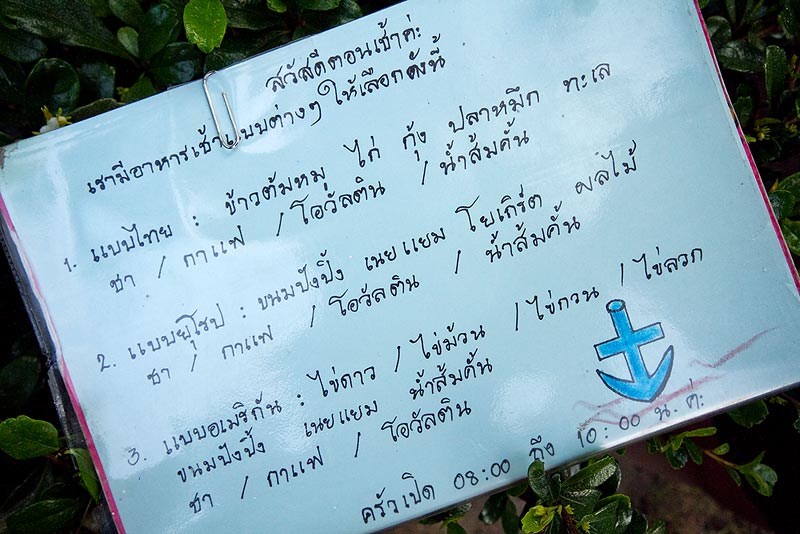 สวัสดีตอนเช้าค่ะ
เรามีอาหารเช้าแบบต่างๆ ให้เลือกดังนี้
1. แบบไทย : ข้าวต้มหมู ไก่ กุ้ง ปลาหมึก ทะเล
ชา / กาแฟ / โอวัลติน / น้ำส้มคั้น
2. แบบยุโรป : ขนมปังปิ้ง เนยแยม โยเกิร์ต ผลไม้
ชา / กาแฟ / โอวัลติน / น้ำส้มคั้น
3. แบบอเมริกัน : ไข่ดาว / ไข่ม้วน / ไข่กวน / ไข่ลวก
ขนมปังปิ้ง เนยแยม น้ำส้มคั้น
ชา / กาแฟ / โอวัลติน
ครัวเปิด 08:00 ถึง 10:00 น. ค่ะ